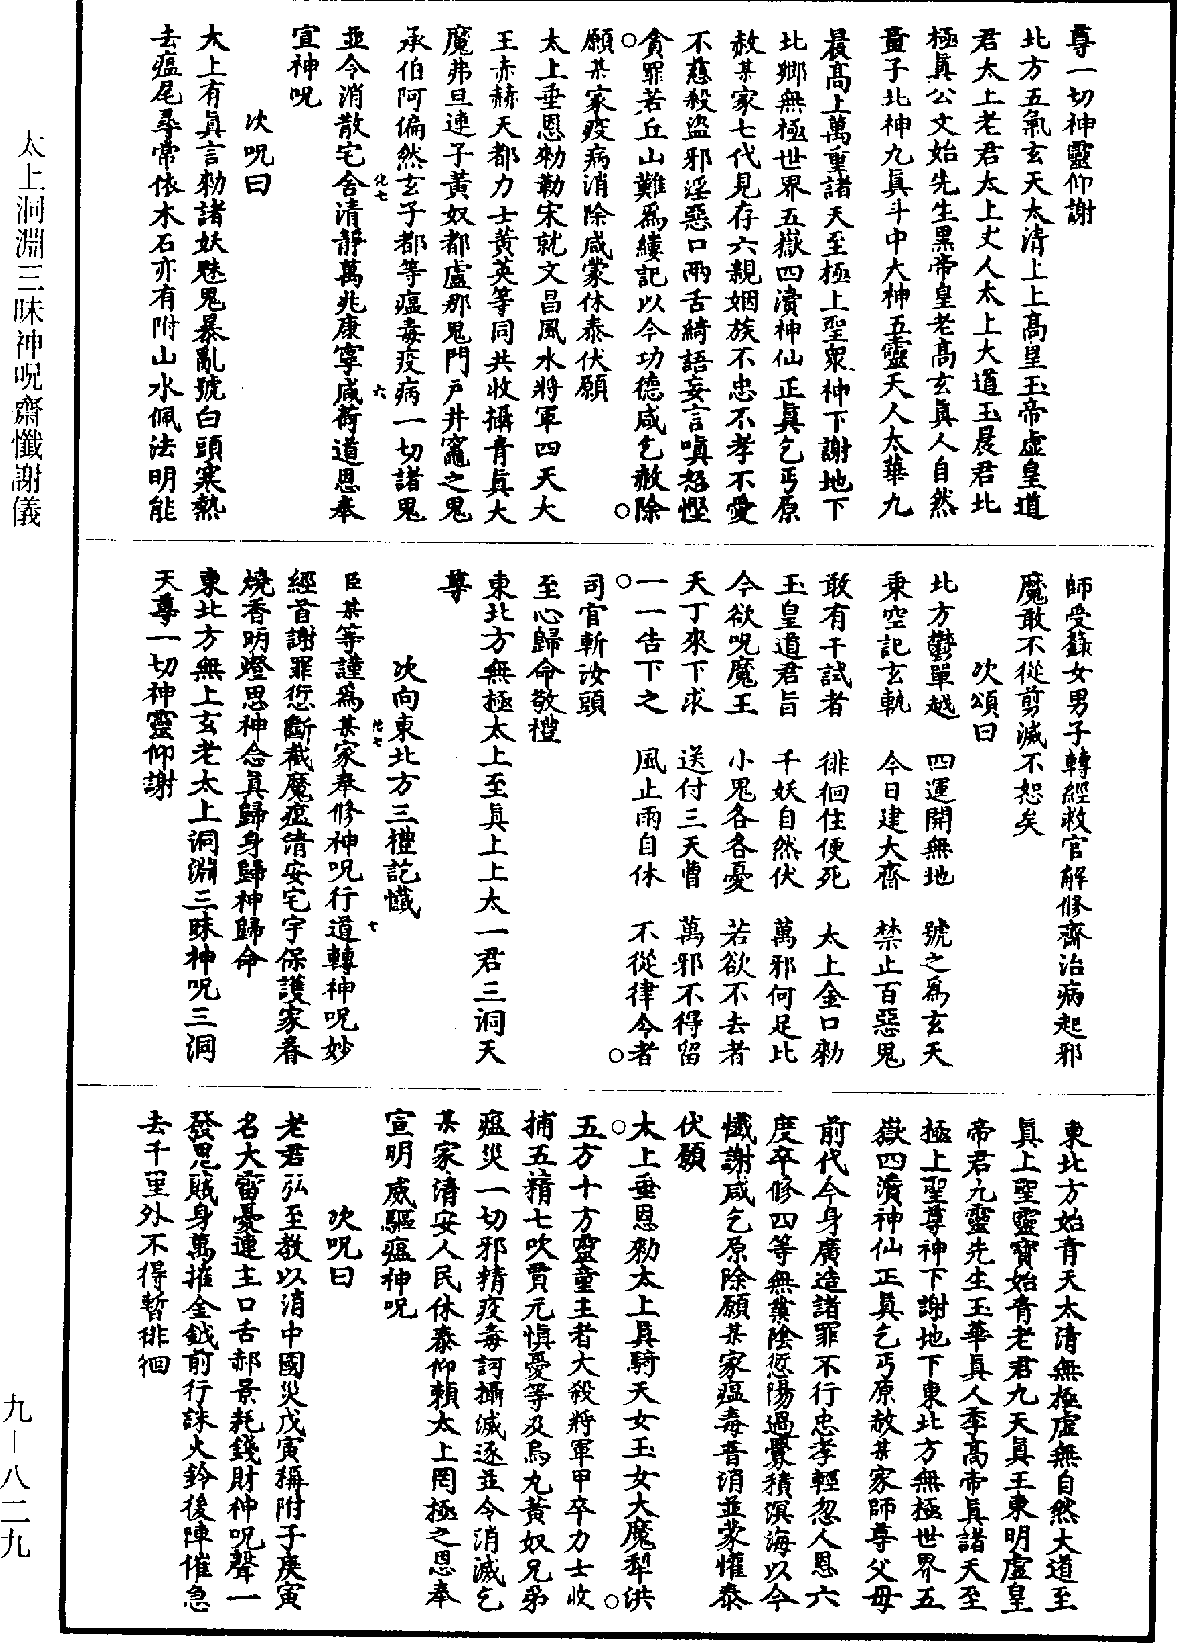 尊一切神靈仰謝
北方五氣玄天太清上上高皇玉帝虛皇道
君太上老君太上丈人太上大道玉晨君北
極真公文始先生黑帝皇老高玄真人自然
童子北神九真斗中大神五靈天人太華九
晨高上萬重諸天至極上聖眾神下謝地下
北鄉無極世界五嶽四瀆神仙正真乞丐原
赦某家七代見存六親姻族不忠不孝不愛
不慈殺盜邪淫惡口兩舌綺語妄言嗔怒慳
貪罪若丘山難為縷記以今功德咸乞赦除
願某家疫病消除咸蒙休泰伏願
太上垂恩勑勒宋就文昌風水將軍四天大
王赤赫天都力士黃英等同共收攝青真大
魔弗旦連子黃奴都盧那鬼門戶井竈之鬼
承伯阿偏然玄子都等瘟毒疫病一切諸鬼
並令消散宅舍清靜萬兆康寧咸荷道恩奉
宣神呪
次呪曰
太上有真言勑諸妖魅鬼暴亂號白頭寒熱
去瘟尾尋常依木石亦有附山水佩法明能
師受籙女男子轉經救官解修齋治病起邪
魔敢不從剪滅不恕矣
次頌曰
北方鬱單越 四運開無地 號之為玄天
秉空記玄軌 今日建大齋 禁止百惡鬼
敢有干試者 徘徊住便死 太上金口勑
玉皇道君旨 千妖自然伏 萬邪何足比
今欲呪魔王 小鬼各各憂 若欲不去者
天丁來下求 送付三天曹 萬邪不得留
一一告下之 風止雨自休 不從律令者
司官斬汝頭
至心歸命敬禮
東北方無極太上至真上上太一君三洞天
尊
次向東北方三禮訖懺
臣某等謹為某家奉修神呪行道轉神呪妙
經首謝罪愆斷截魔瘟清安宅宇保護家眷
燒香明燈思神念真歸身歸神歸命
東北方無上玄老太上洞淵三昧神呪三洞
天尊一切神靈仰謝
東北方始青天太清無極虛無自然大道至
真上聖靈寶始青老君九天真王東明虛皇
帝君元靈先生玉華真人季高帝真諸天至
極上聖尊神下謝地下東北方無極世界五
嶽四瀆神仙正真乞丐原赦某家師尊父母
前代今身廣造諸罪不行忠孝輕忽人恩六
度卒修四等無業陰愆陽過釁積溟海以今
懺謝咸乞原除願某家瘟毒普消並蒙懽泰
伏願
太上垂恩勑太上真騎天女玉女大魔犁洪
五方十方靈童主者大殺將軍甲卒力士收
捕五精七吹賈元慎憂等及烏丸黃奴兄弟
瘟災一切邪精疫毒訶攝滅逐並令消滅乞
某家清安人民休泰仰賴太上罔極之恩奉
宣明威驅瘟神呪
次呪曰
老君弘至教以消中國災戊寅稱附子庚寅
名大雷憂連主口舌郝景耗錢財神呪聲一
發鬼賊身萬摧金鉞前行誅火鈴後陣催急
去千里外不得暫徘徊
太上洞淵三昧神呪齋懺謝儀
九—八二九